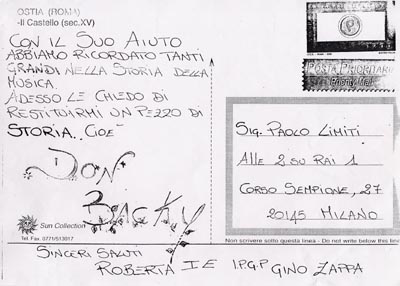 OSTIA (ROMA)
-Il Castello (sec.XV)
CON IL SUO AIUTO
ABBIAMO RICORDATO TANTI
GRANDI NELLA STORIA DELLA
MUSICA.
ADESSO LE CHIEDO DI
RESTITUIRMI UN PEZZO DI
STORIA.. CIOÈ
DON
BACKY
Sun Collection
Tel. Fax. 0771/513017
SINCERI SALUTI
ROBERTA I E I.P.G.P GINO ZAPPA
POSTA PRIORITARIA
Priority Mail
SIG. PAOLO LIMITI
ALLE 2 SU RAI 1
CORSO SEMPIONE, 27
20145 MILANO
Non scrivere sotto questa linea - Do not write below this line